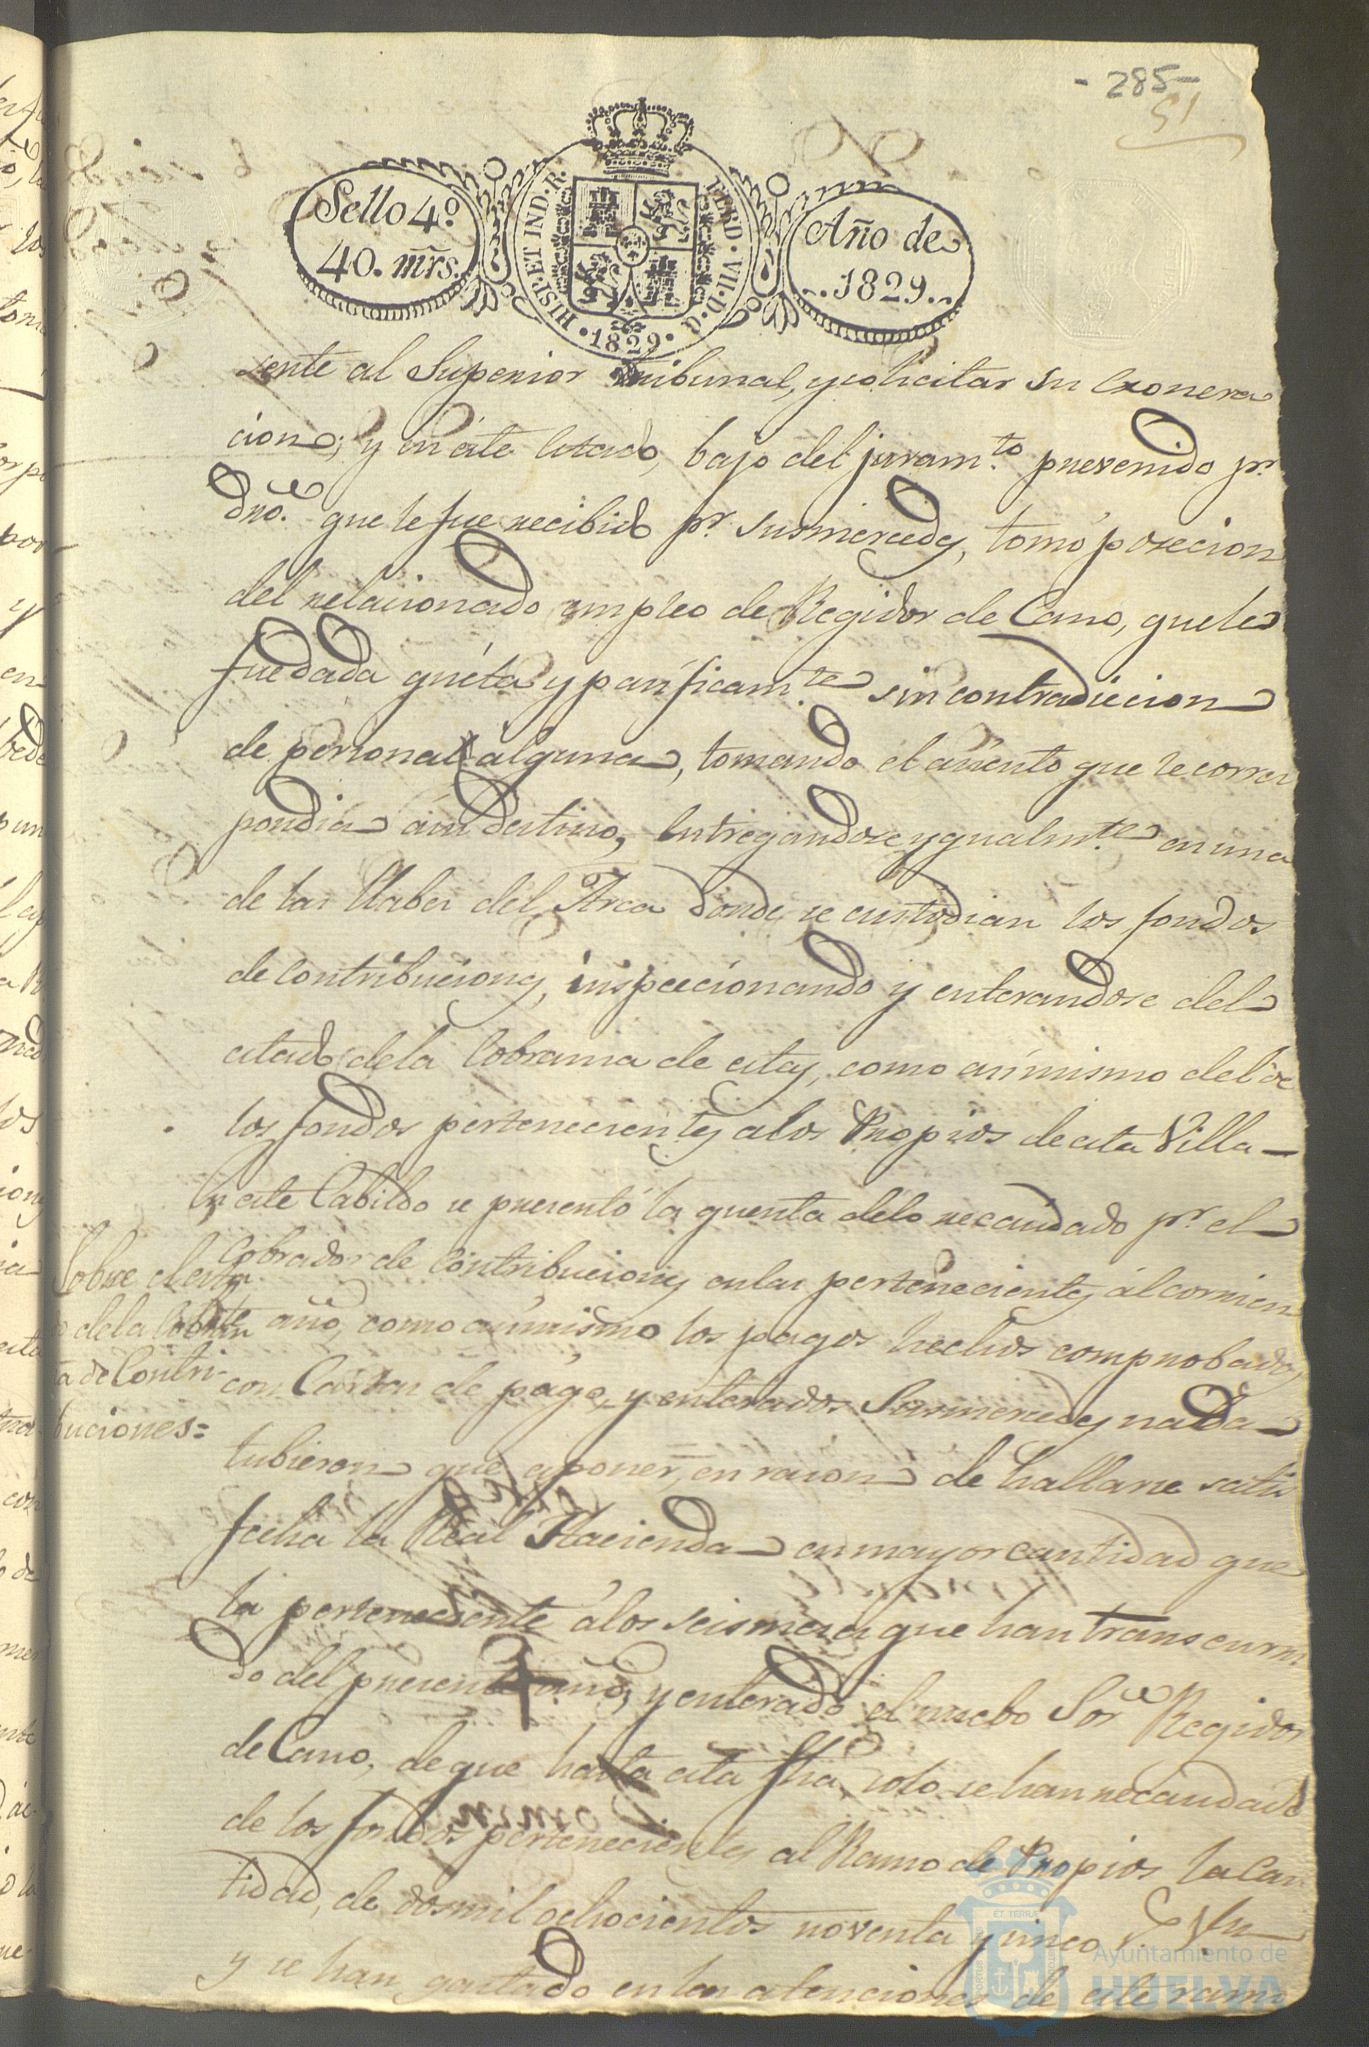 - 285 -
51
Sello 4º
40. mrs.
HISP. ET IND. R.
FERD. VII. D. G.
1829
Año de
1829
sente al Superior Tribunal, y solicitar su exonera
cion; y en este estado, bajo del juram.to prevenido pr.
dro. que le fue recibido pr. susmercedes, tomó posecion
del relacionado empleo de Regidor de Cano, que le
fue dada quieta y pasificam.te sin contradiccion
de persona alguna, tomando el asiento que le corres
pondia á su destino, entregandose ygualm.te en una
de las llabes del Arca donde se custodian los fondos
de contribuciones, inspeccionando y enterandose del
estado de la Cobransa de estas, como asimismo del de
los fondos pertenecientes a los Propios de esta Villa
En este Cabildo se presentó la quenta de lo recaudado pr. el
Cobrador de Contribuciones en las pertenecientes al corrien
te año, como asimismo los pagos hechos comprobados
con Cartas de pago, y enterados Susmercedes nada
tubieron que esponer, en rason de hallarse satis
fecha la Real Hacienda en mayor cantidad que
la perteneciente á los seis meses que han transcurri
do del presente año, y enterado el nuebo Sor. Regidor
de Cano, de que hasta esta fha, solo se han recaudado
de los fondos pertenecientes al Ramo de Propios la can
tidad, de dos mil ochocientos noventa y cinco r.s Vn
y se han gastado en las atenciones de este ramo
Sobre el esta
do de la Cobran
sa de Contri-
buciones=
ET TERRÆ
Ayuntamiento de
HUELVA